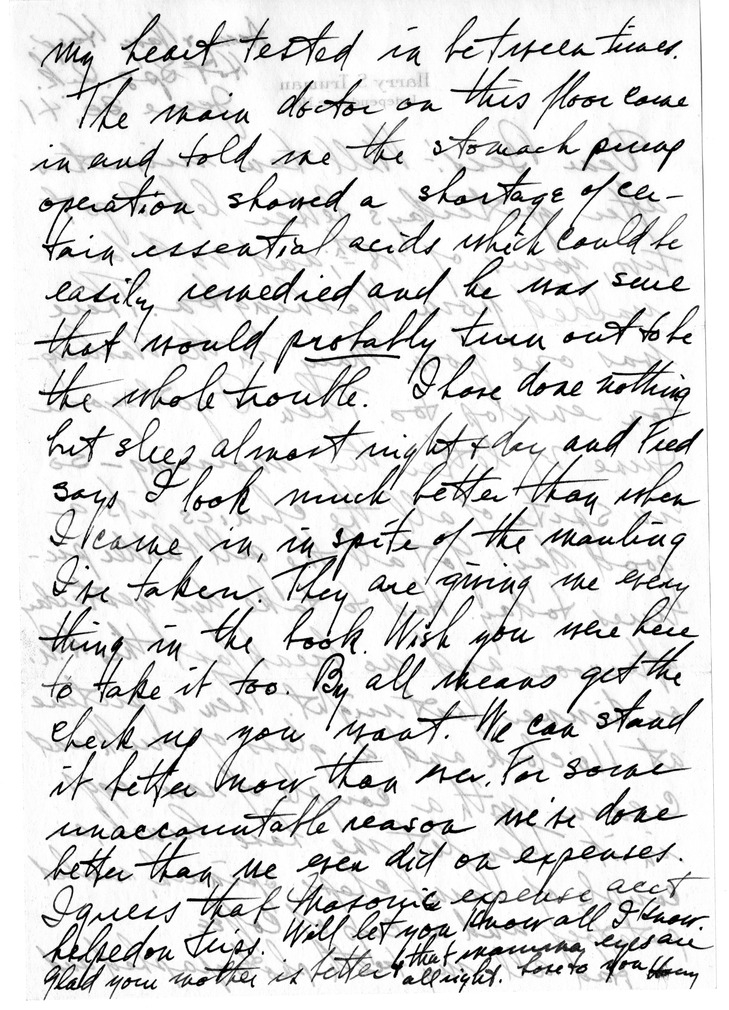 my heart tested in between times.
The main doctor on this floor came
in and told me the stomach pump
operation showed a shortage of cer-
tain essential acids which could be
easily remedied and he was sure
that would probably turn out to be
the whole trouble. I have done nothing
but sleep almost night & day and Fred
says I look much better than when
I came in, in spite of the mauling
I've taken. They are giving me every
thing in the book. Wish you were here
to take it too. By all means get the
check up you want. We can stand
it better now than ever. For some
unaccountable reason we've done
better than we ever did on expenses.
I guess that Masonic expense acct
helped on trips. Will let you know all I know.
Glad your mother is better & that mamma eyes are
all right. Love to you Harry
Harry S. Truman